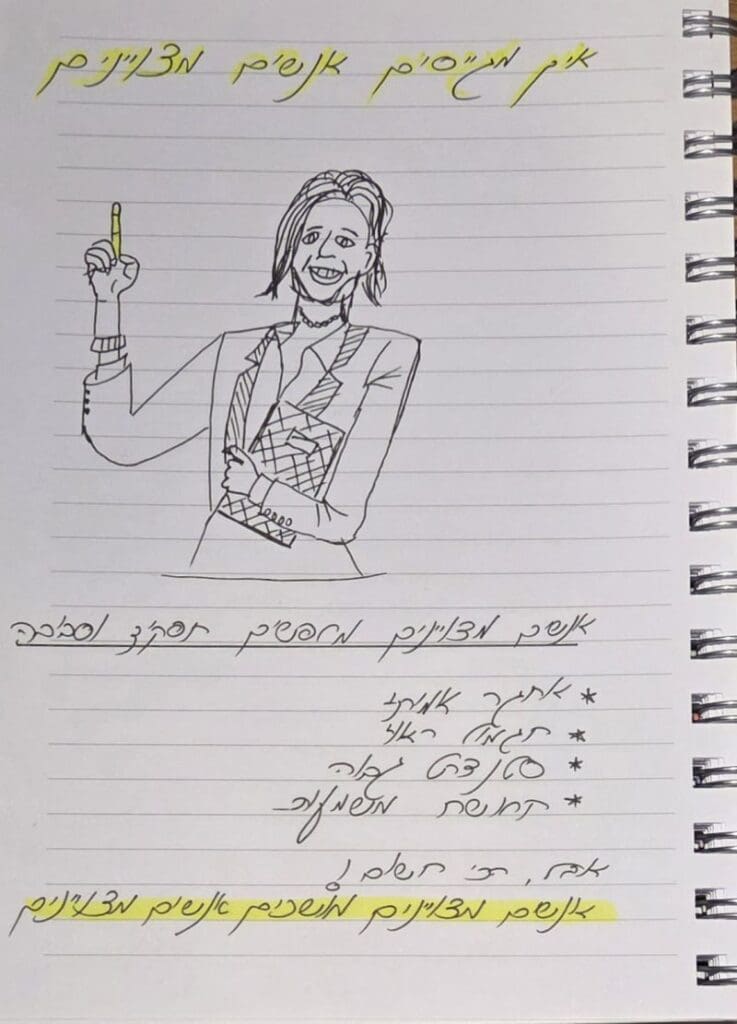 איך מגייסים אנשים מצויינים
אנשים מצויינים מחפשים תפקיד וסביבה
* אתגר אמיתי
* תגמול ראוי
* סטנדרט גבוה
* תחושת משמעות
אבל, הכי חשוב!
אנשים מצויינים מושכים אנשים מצויינים